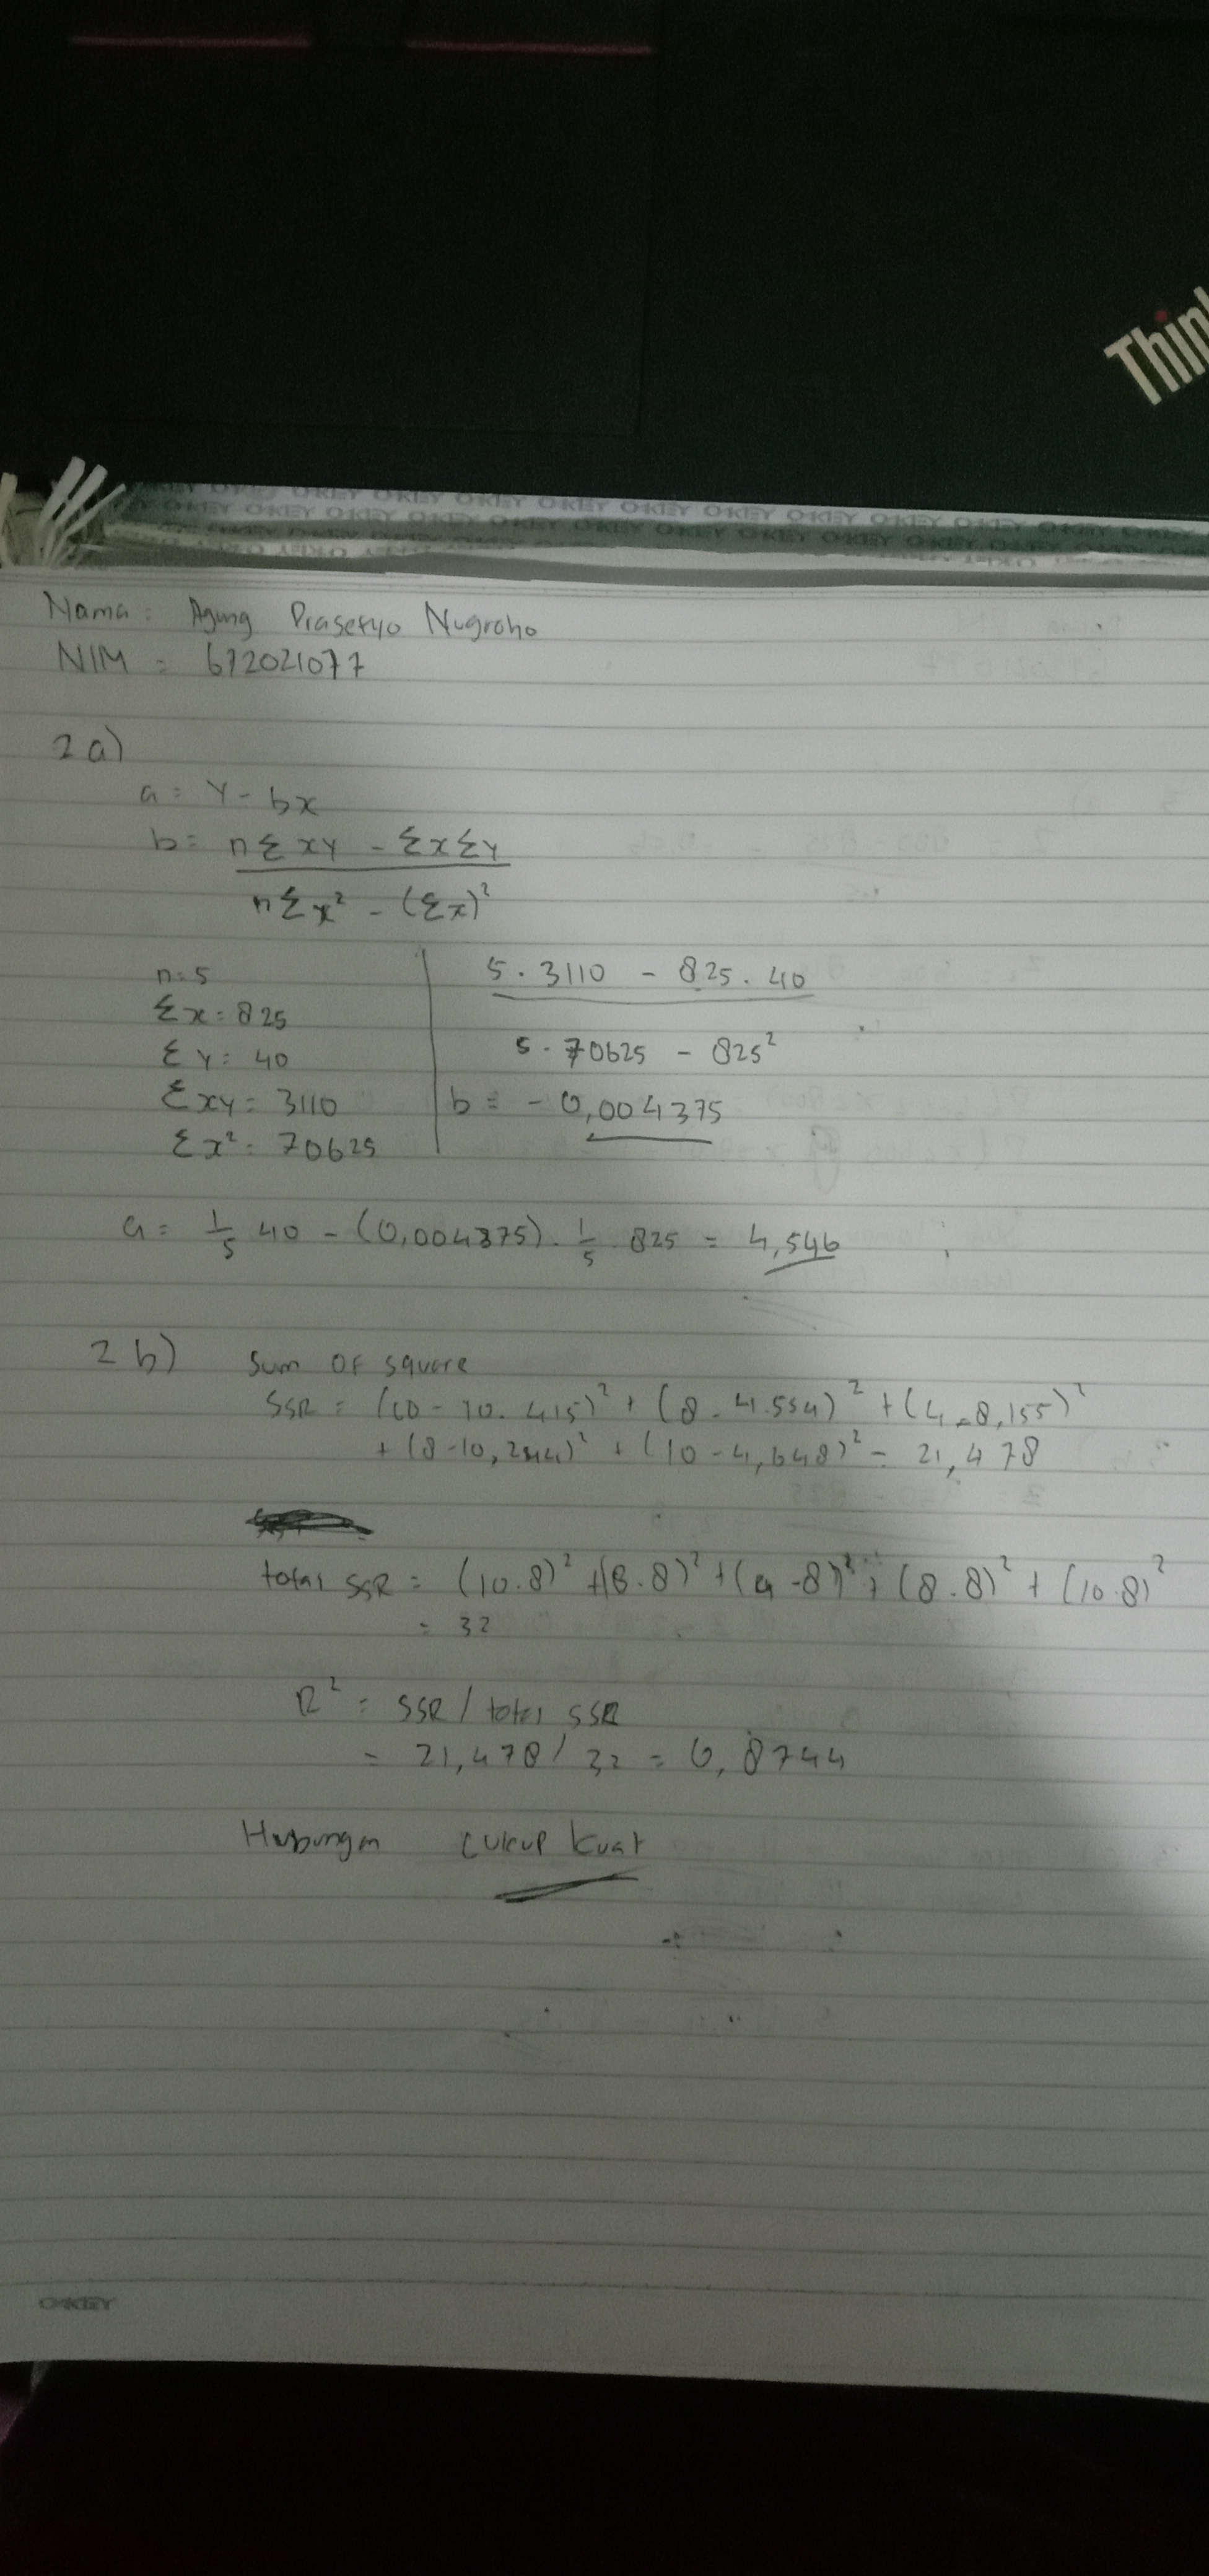 Thin
O·KEY O·KEY O·KEY O·KEY O·KEY O·KEY O·KEY O·KEY O·KEY
Nama : Agung Prasetyo Nugroho
NIM = 672021077
2 a)
a = Y - bx
b = nΣxy - ΣxΣy
nΣx² - (Σx)²
n = 5
Σx = 825
Σy = 40
Σxy = 3110
Σx² = 70625
5 . 3110 - 825 . 40
5 . 70625 - 825²
b = - 0,004375
a = 1/5 40 - (0,004375) . 1/5 825 = 4,546
2 b) Sum of square
SSR = (10 - 10.415)² + (8 - 4.554)² + (4 - 8,155)²
+ (8 - 10,244)² + (10 - 4,648)² = 21,478
total SSR = (10.8)² + (8.8)² + (4 - 8)² + (8.8)² + (10.8)²
= 32
R² = SSR / total SSR
= 21,478 / 32 = 0,8744
Hubungan cukup kuat
O·KEY